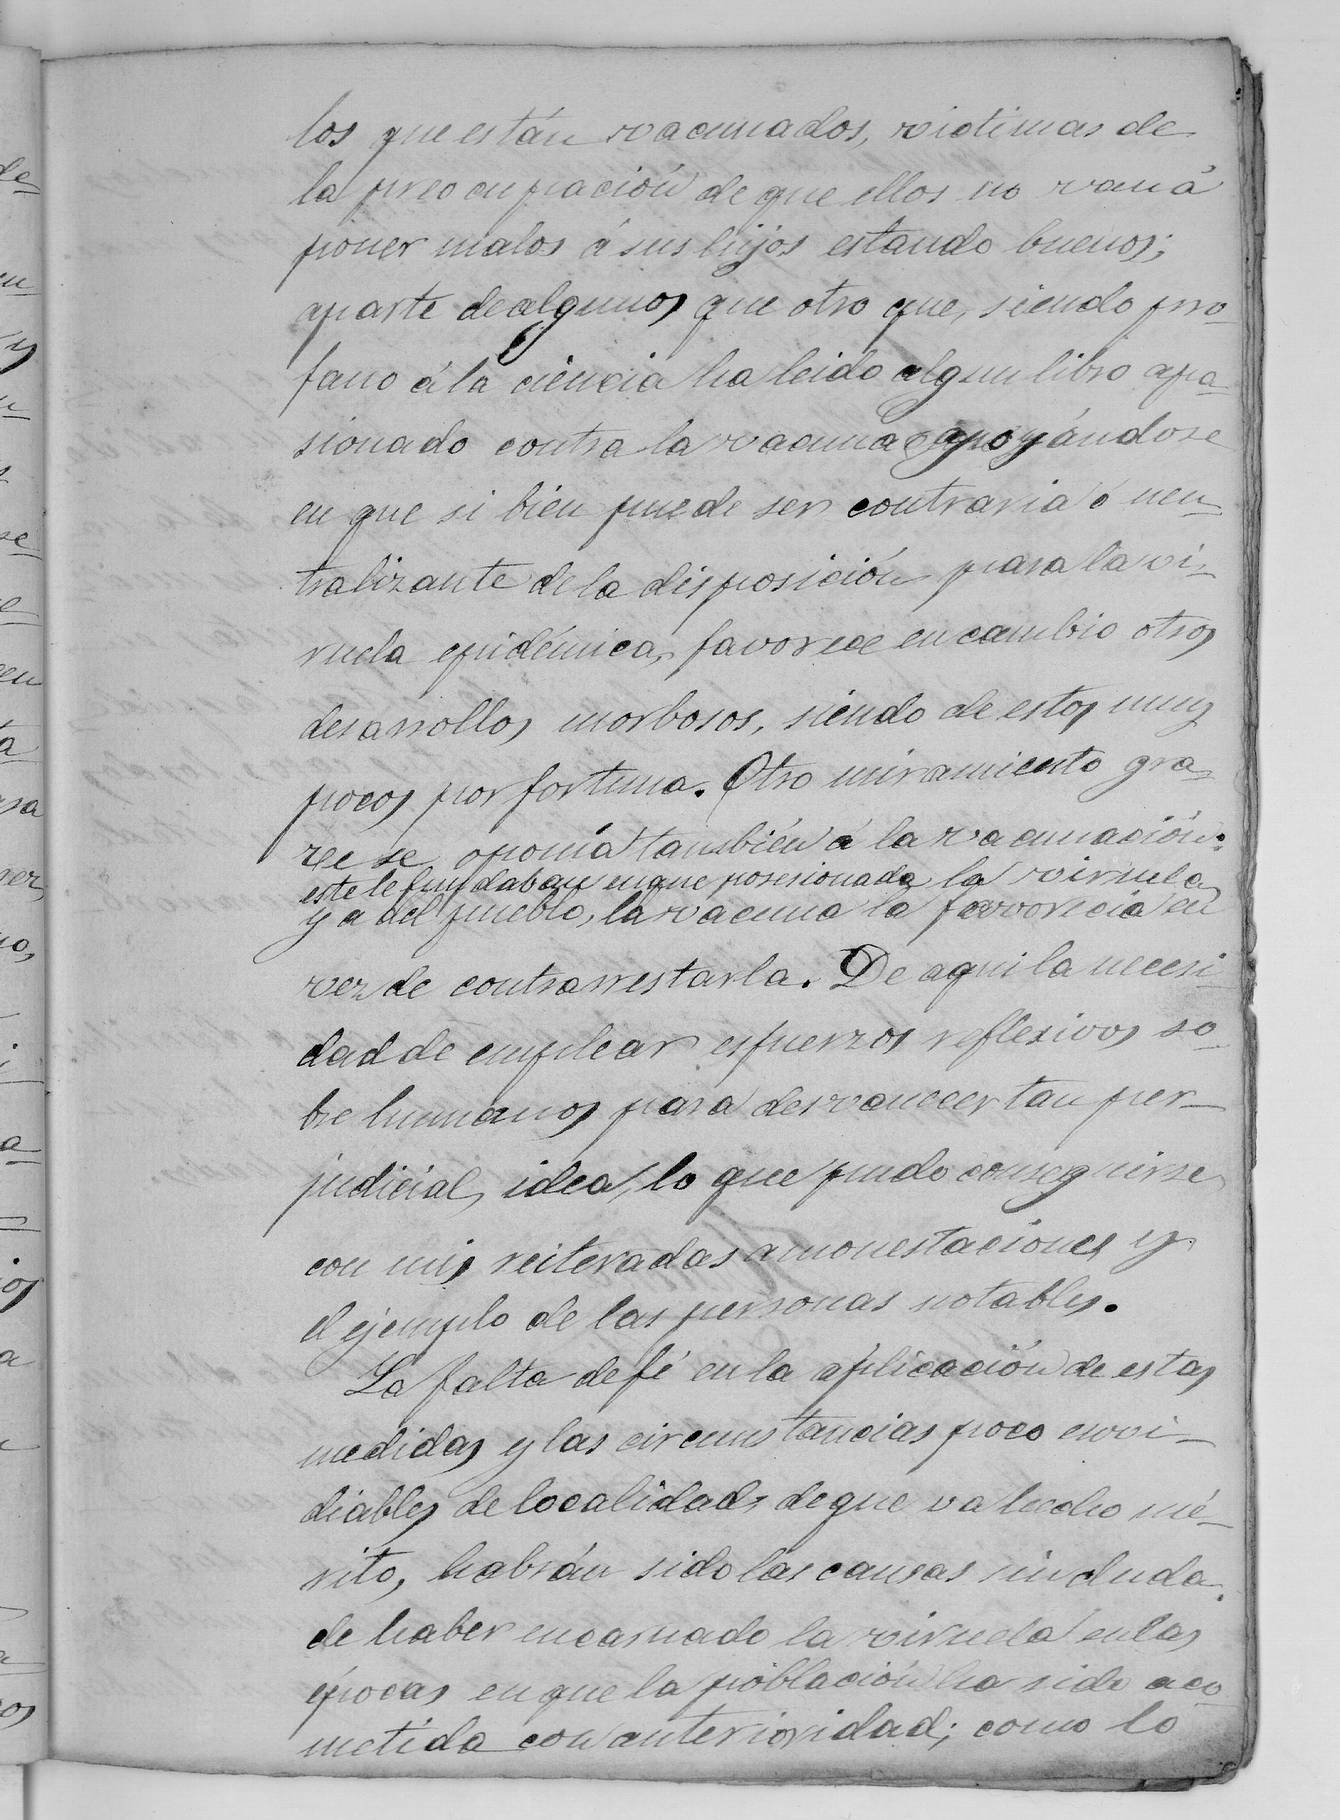 los que están vacunados, victimas de
la preocupación de que ellos no van á
poner malos á sus hijos estando buenos;
aparte de algunos que otro que, siendo pro-
fano á la ciencia ha leido algun libro apa-
sionado contra la vacuna apoyándose
en que si bien puede ser contraria ó neu-
tralizante de la disposición para la vi-
ruela epidémica, favorece en cambio otros
desarrollos morbosos, siendo de estos muy
pocos por fortuna. Otro miramiento gra-
ve se oponía también á la vacunación:
este le fundaban en que posesionada la viruela
ya del pueblo, la vacuna la favorecia en
vez de contrarrestarla. De aqui la necesi-
dad de emplear esfuerzos reflexivos so-
bre humanos para desvanecer tan per-
judicial idea, lo que pudo conseguirse
con mis reiteradas amonestaciones y
el ejemplo de las personas notables.
La falta de fé en la aplicación de estas
medidas y las circunstancias poco envi-
diables de localidad de que va hecho mé-
rito, habrán sido las causas sin duda
de haber encarnado la viruela en las
épocas en que la población ha sido aco-
metida con anterioridad; como lo